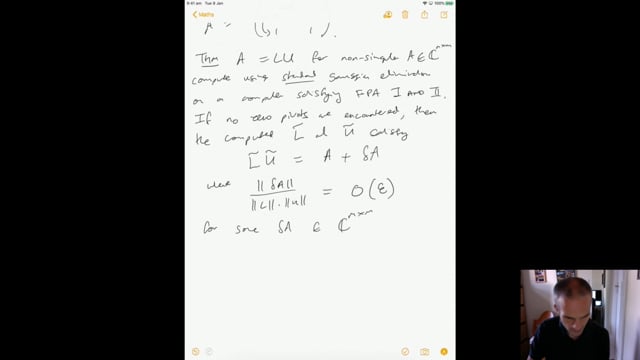 9:41 am Tue 9 Jan
100%
Maths
A =
Thm A = LU for non-singular A ∈ ℂ^{m×m}
compute using standard Gaussian elimination
on a computer satisfying FPA I AND II.
If no zero pivots are encountered, then
the computed L̃ and Ũ satisfy
L̃ Ũ = A + δA
where ||δA|| / ||L||·||U|| = O(ε)
for some δA ∈ ℂ^{m×m}